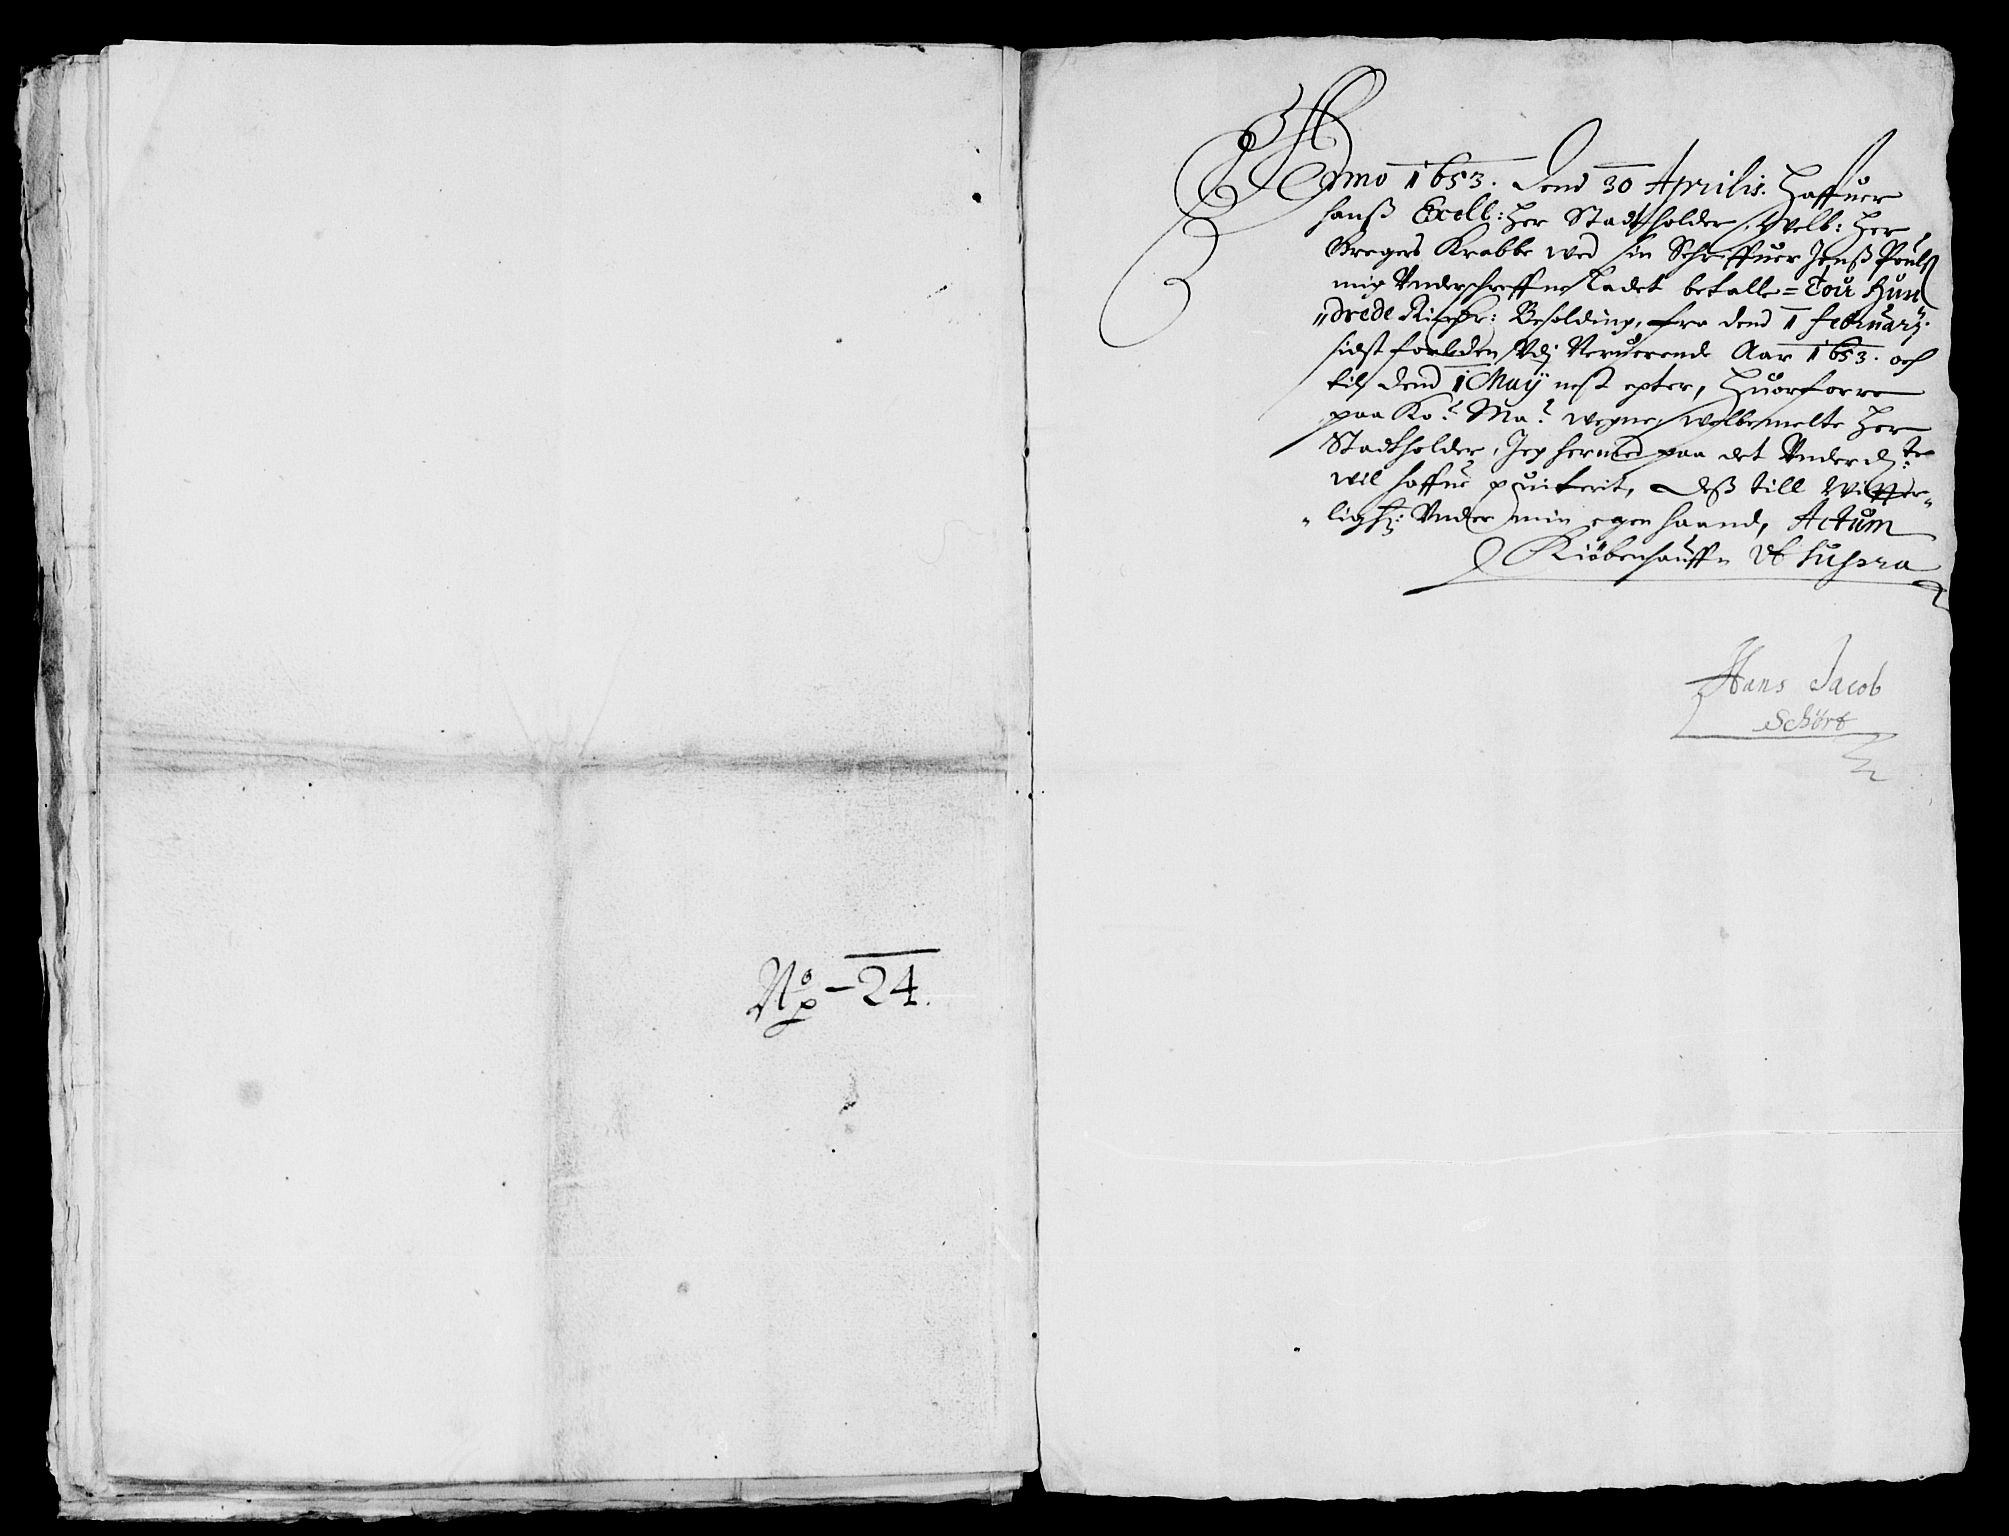 No 24.
Anno 1653. Dend 30 Aprilis. Haffuer
hanß Excell: Her Stadtholder, Velb: Her
Gregers Krabbe wed sin Schriffuer Jenß Pouls
mig Underschreffne ladet betalle = Tou Hun
"drede Rixdr: Besolding, fra dend 1 February
sidst forleden Udj Neruerende Aar 1653. och
till dend 1 Maÿ nest epter, Huorforre
paa Ko: Ma: wegne, welbemelte Her
Stadtholder, Jeg hermed paa det Underd:te
wil haffue quiterit, Deß till Witter-
"ligh: Under min egen haand, Actum
Kiøbenhauffn Ut supra
Hans Jacob
Schört